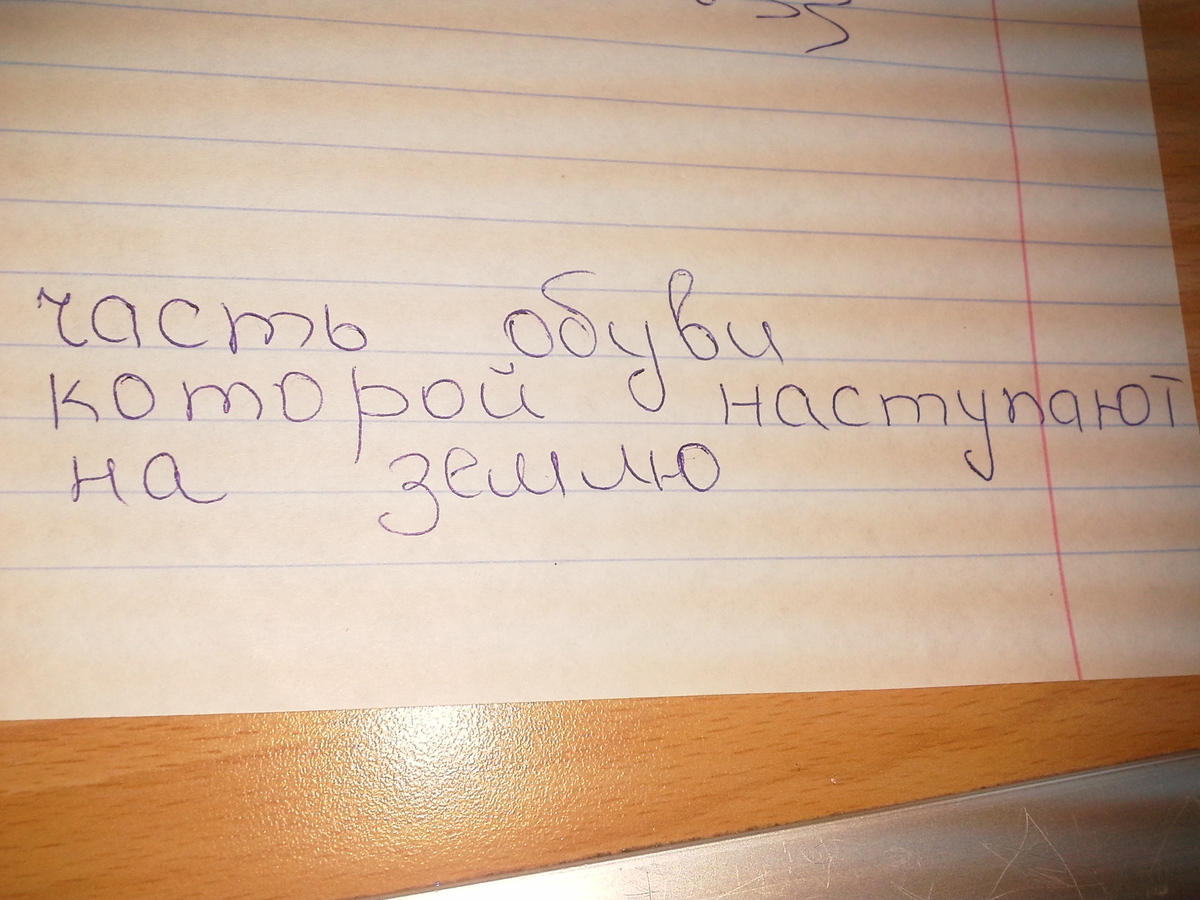 часть обуви
которой наступают
на землю